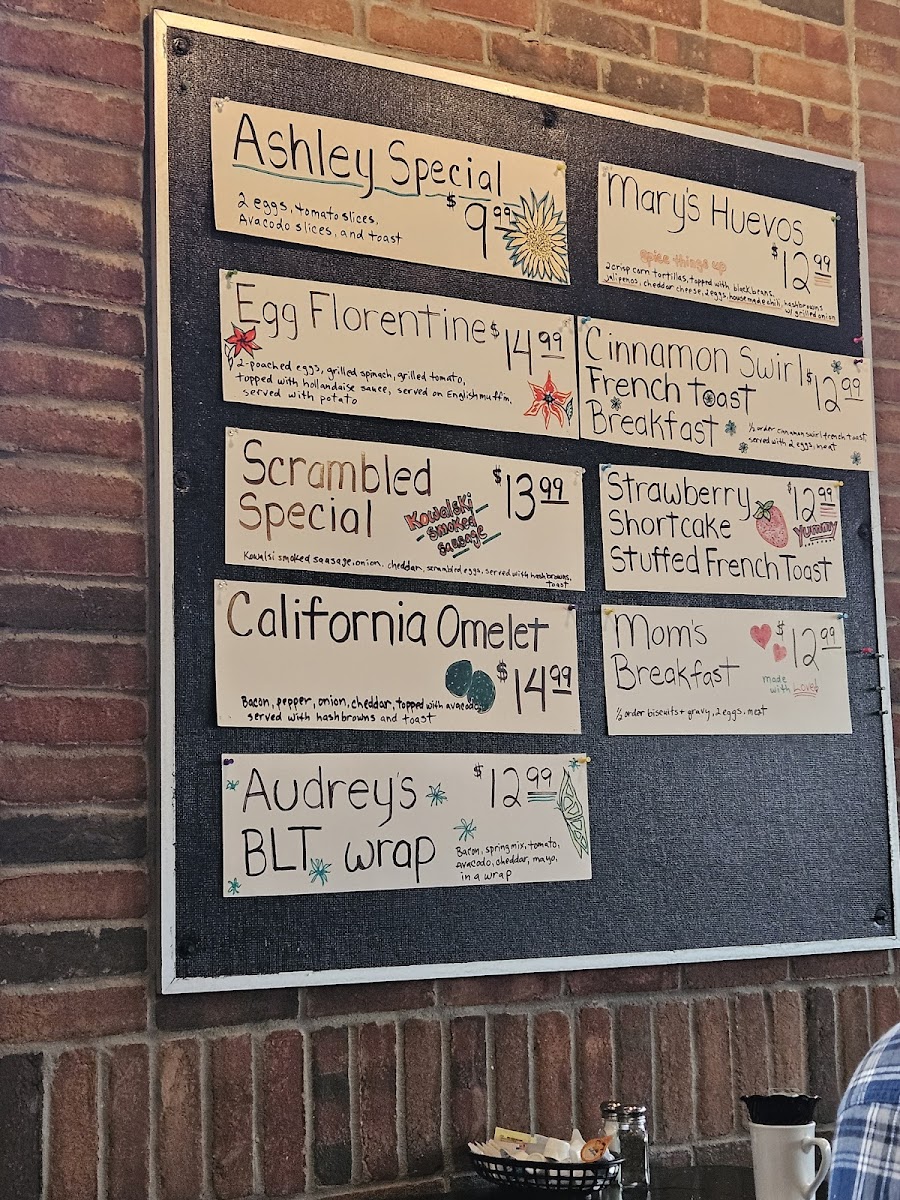 Ashley Special
$9.99
2 eggs, tomato slices,
Avacodo slices, and toast
Egg Florentine $14.99
2-poached eggs, grilled spinach, grilled tomato,
topped with hollandaise sauce, served on English muffin,
served with potato
Scrambled
Special
$13.99
Kowalski
Smoked
Sausage
Kowalsi smoked sausage, onion, cheddar, scrambled eggs, served with hashbrowns,
toast
California Omelet
$14.99
Bacon, pepper, onion, cheddar, topped with avacado,
served with hashbrowns and toast
Audrey's
BLT wrap
$12.99
Bacon, spring mix, tomato,
Avacado, cheddar, mayo,
in a wrap
Mary's Huevos
$12.99
spice things up
2 crisp corn tortillas, topped with black beans,
jalipenos, cheddar cheese, 2 eggs, housemade chili, hashbrowns
w/ grilled onion
Cinnamon Swirl
French Toast
Breakfast
$12.99
1/2 order cinnamon swirl french toast,
served with 2 eggs, meat
Strawberry
Shortcake
Stuffed French Toast
$12.99
Yummy
Mom's
Breakfast
$12.99
made
with Love
1/2 order biscuits + gravy, 2 eggs, meat